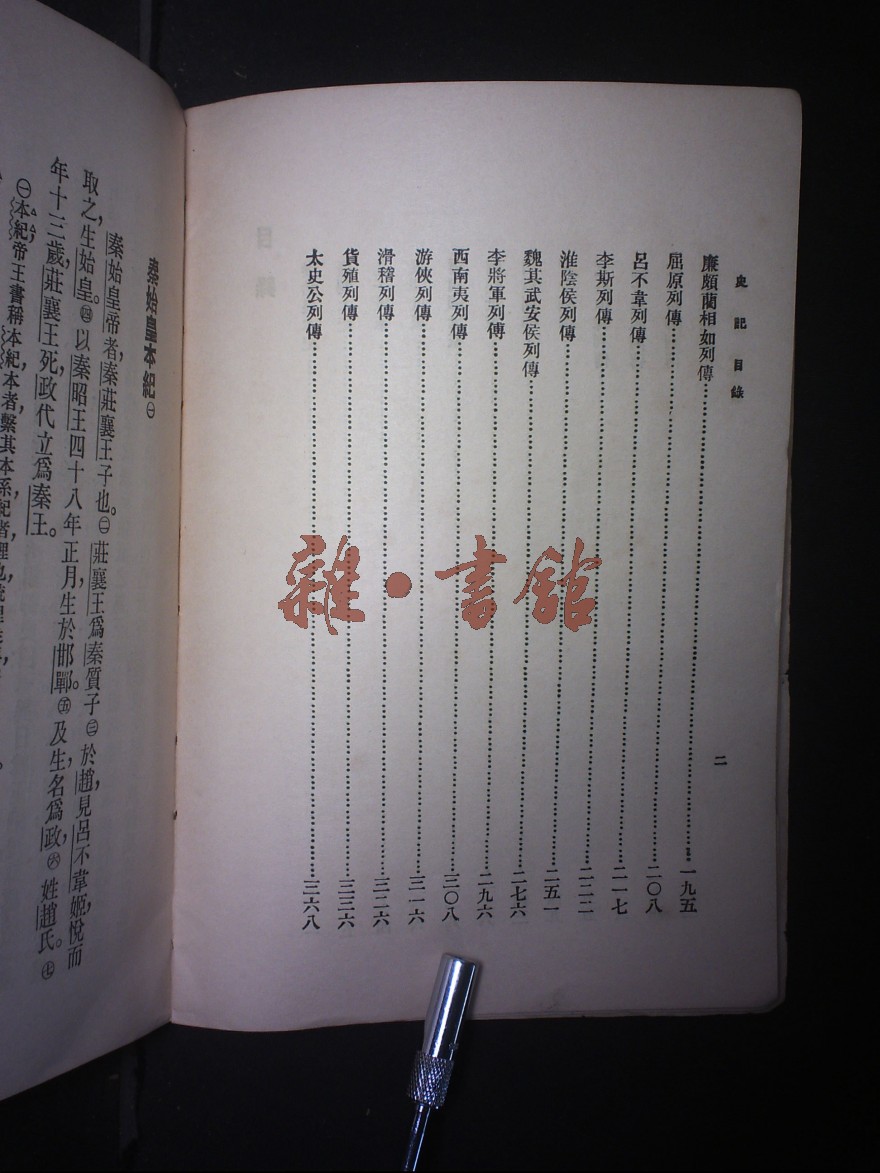 史記目錄
二
廉頗藺相如列傳……一九五
屈原列傳……二〇八
呂不韋列傳……二一七
李斯列傳……二二二
淮陰侯列傳……二五一
魏其武安侯列傳……二七六
李將軍列傳……二九六
西南夷列傳……三〇八
游俠列傳……三一六
滑稽列傳……三二六
貨殖列傳……三三六
太史公列傳……三六八
目錄
雜·書館
秦始皇本紀㊀
秦始皇帝者，秦莊襄王子也。㊁莊襄王爲秦質子㊂於趙，見呂不韋姬，悅而
取之，生始皇。㊃以秦昭王四十八年正月生於邯鄲。㊄及生，名爲政，㊅姓趙氏。㊆
年十三歲，莊襄王死，政代立爲秦王。
㊀本紀，帝王書稱本紀，本者，繫其本系，紀者，理也，